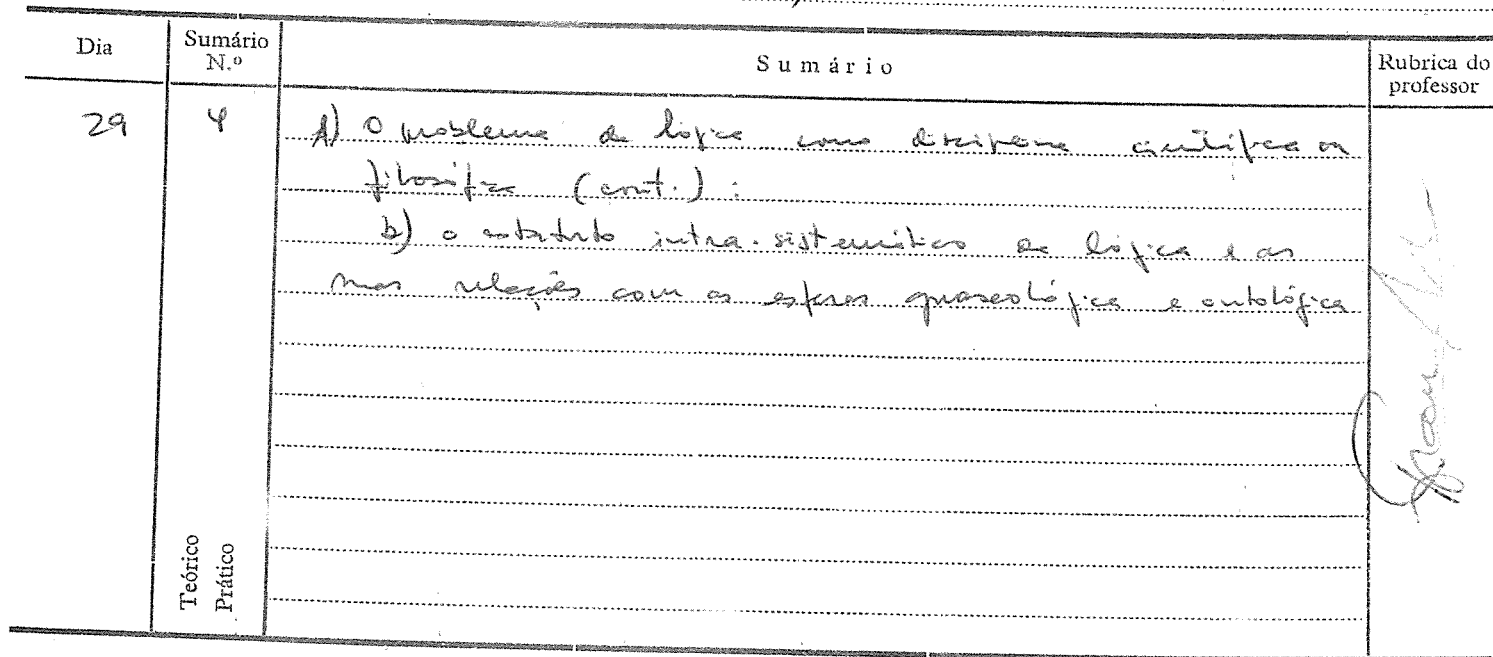 Dia
Sumário N.º
Sumário
Rubrica do professor
29
4
A) O problema da lógica como disciplina científica ou
filosófica (cont.) :
b) o estatuto intra-sistemático da lógica e as
suas relações com as esferas gnoseológica e ontológica
Teórico
Prático